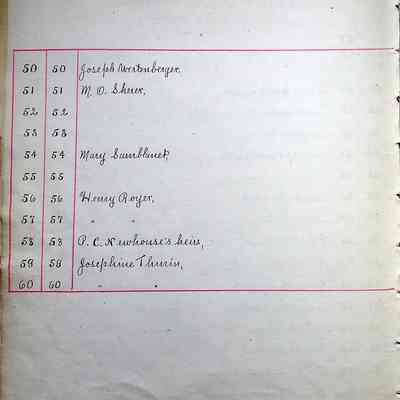 50 50 Joseph Westenberger,
51 51 M. O. Shrer,
52 52
53 53
54 54 Mary
55 55
56 56 Henry Royer,
57 57 " "
58 58 P. C. Newhouse's heirs,
59 58 Josephine Thurin,
60 60 " "